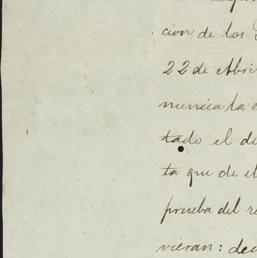 cion de los
22 de Abri
nunica la
tado el de
ta que de el
prueba del re
vieran: dec